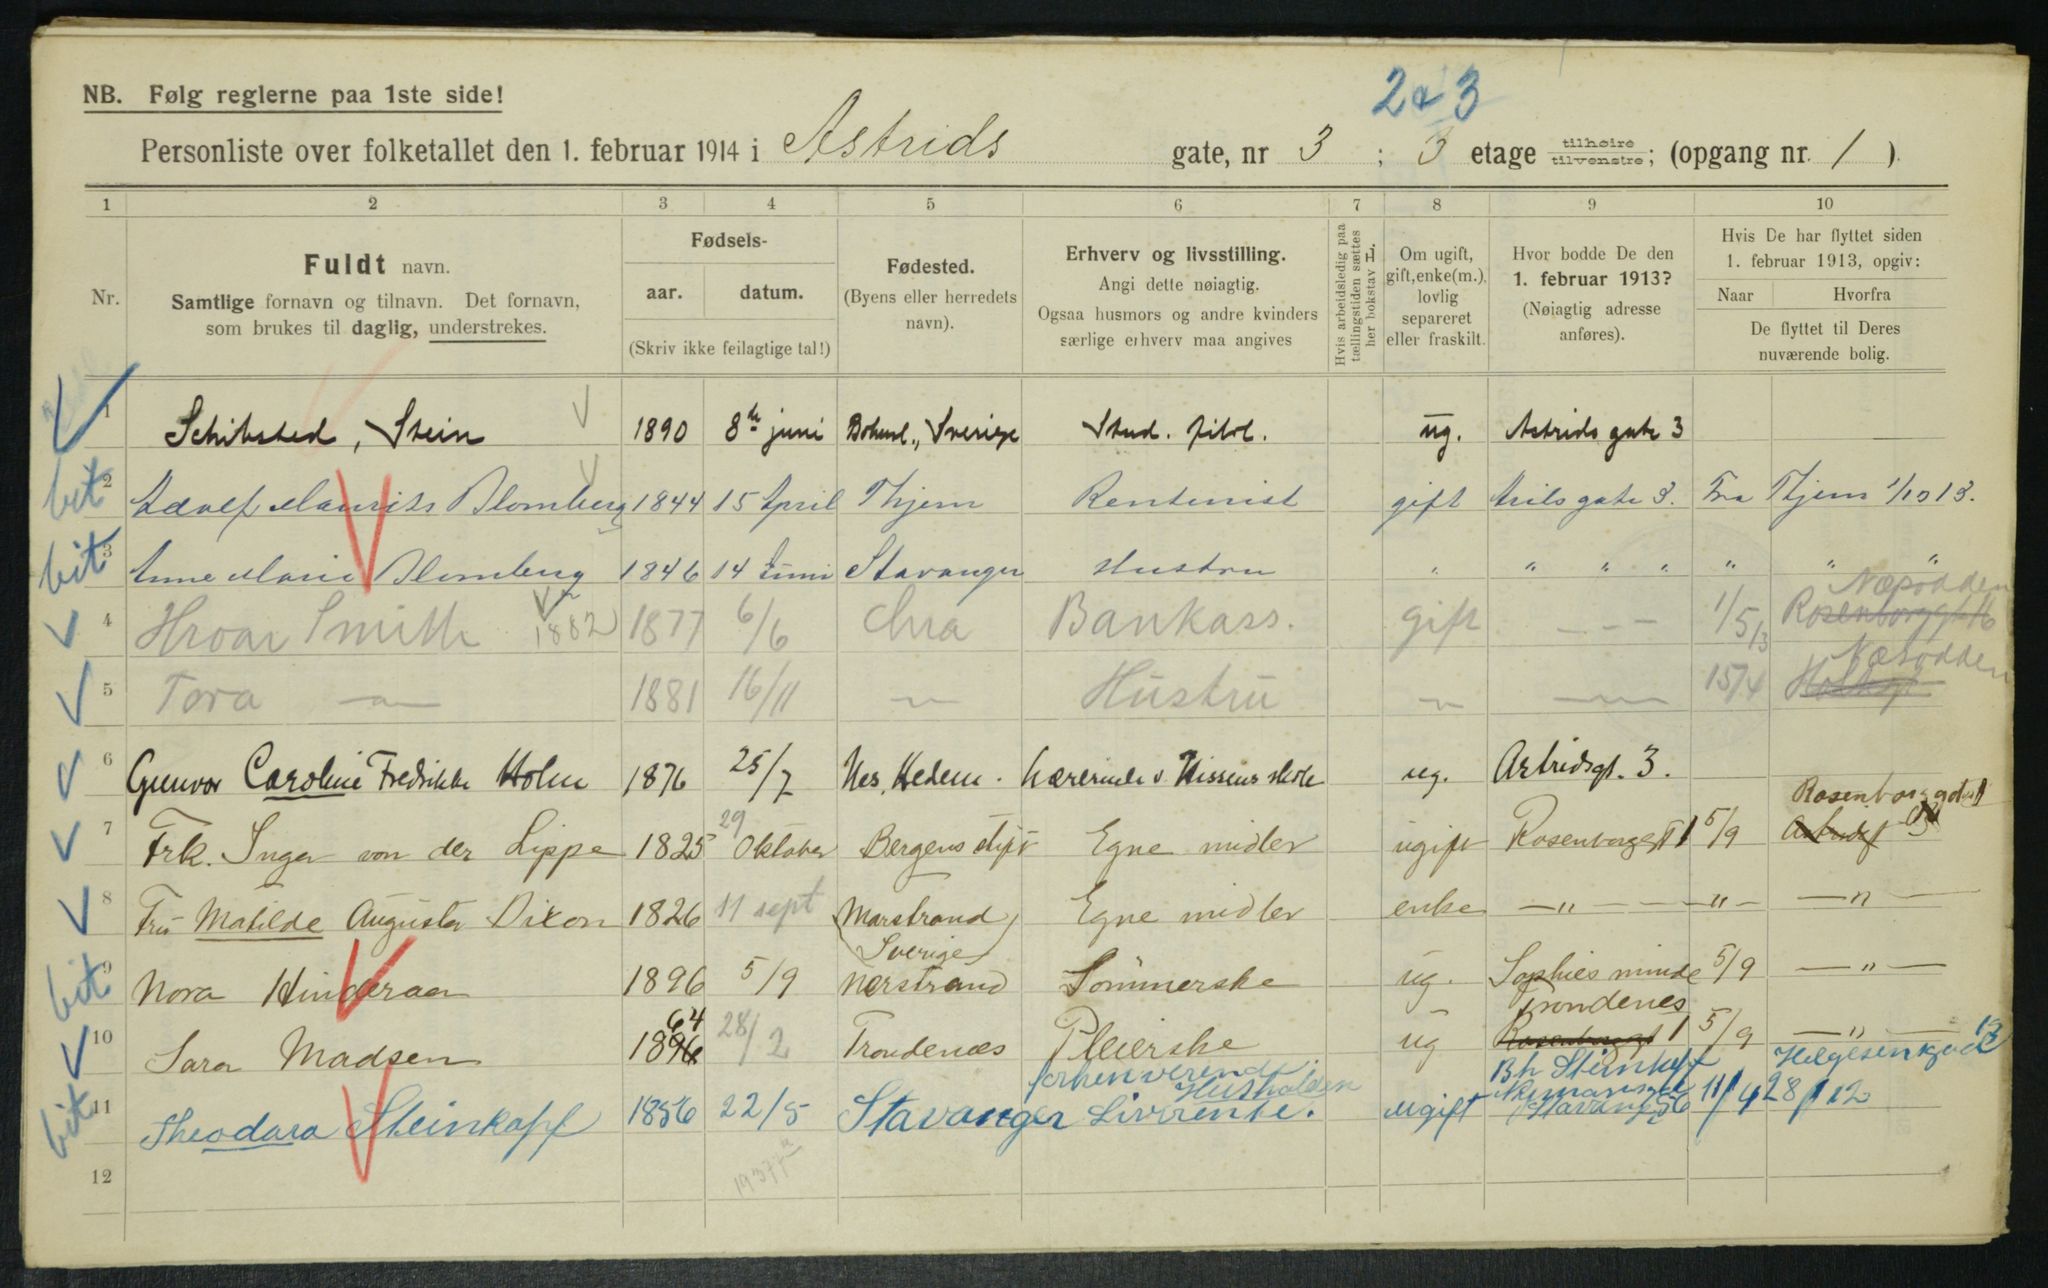 2 & 3
NB. Følg reglerne paa 1ste side!
Personliste over folketallet den 1. februar 1914 i Astrids gate, nr 3 ; 3 etage tilhøire tilvenstre; (opgang nr. 1 ).
1 2 3 4 5 6 7 8 9 10
Nr.
Fuldt navn.
Samtlige fornavn og tilnavn. Det fornavn,
som brukes til daglig, understrekes.
Fødsels-
aar. datum.
(Skriv ikke feilagtige tal!)
Fødested.
(Byens eller herredets
navn).
Erhverv og livsstilling.
Angi dette nøiagtig.
Ogsaa husmors og andre kvinders
særlige erhverv maa angives
Hvis arbeidsledig paa
tællingstiden sættes
her bokstav L.
Om ugift,
gift, enke(m.),
lovlig
separeret
eller fraskilt.
Hvor bodde De den
1. februar 1913?
(Nøiagtig adresse
anføres).
Hvis De har flyttet siden
1. februar 1913, opgiv:
Naar Hvorfra
De flyttet til Deres
nuværende bolig.
1 Schibsted, Stein 1890 8de juni Bohusl., Sverige Stud. filol. ug. Astrids gate 3
bit 2 Adolf Maurits Blomberg 1844 15 April Thjem Rentenist gift gate 3. Fra Thjem 1/10 13.
bit 3 Anne Marie Blomberg 1846 14 Juni Stavanger Hustru " " " " " " "
Næsodden
4 Hroar Smith 1882 1877 6/6 Chra Bankass. gift — — — 1/5 13 Rosenborggt 16
Næsodden
5 Tora — 1881 16/11 — Hustru — — 15/4
6 Gunvor Caroline Fredrikke Holm 1876 25/7 Nes, Hedem. Lærerinde v. Nissens skole ug. Astridsgt. 3.
Rosenborggd 1
7 Frk. Inga von der Lippe 1825 29 Oktober Bergens stift Egne midler ugift Rosenborggt 1 5/9 Astridsgt
8 Fru Matilde Augusta Dixon 1826 11 sept Marstrand Egne midler enke — " — — — " — — " —
Sverige
bit 9 Nora Hinderaa 1896 5/9 Nerstrand Sömmerske ug. Sophies minde 5/9 — " —
64 Trondenes
10 Sara Madsen 1896 28/2 Trondenæs Pleierske ug Rosenborggt 1 5/9 — " —
forhenverende Husholder Bh Steinkopf Helgesensgade 12
bit 11 Theodara Steinkopf 1856 22/5 Stavanger Livrente. ugift Stavanger 56 11/4 28/ 12
12